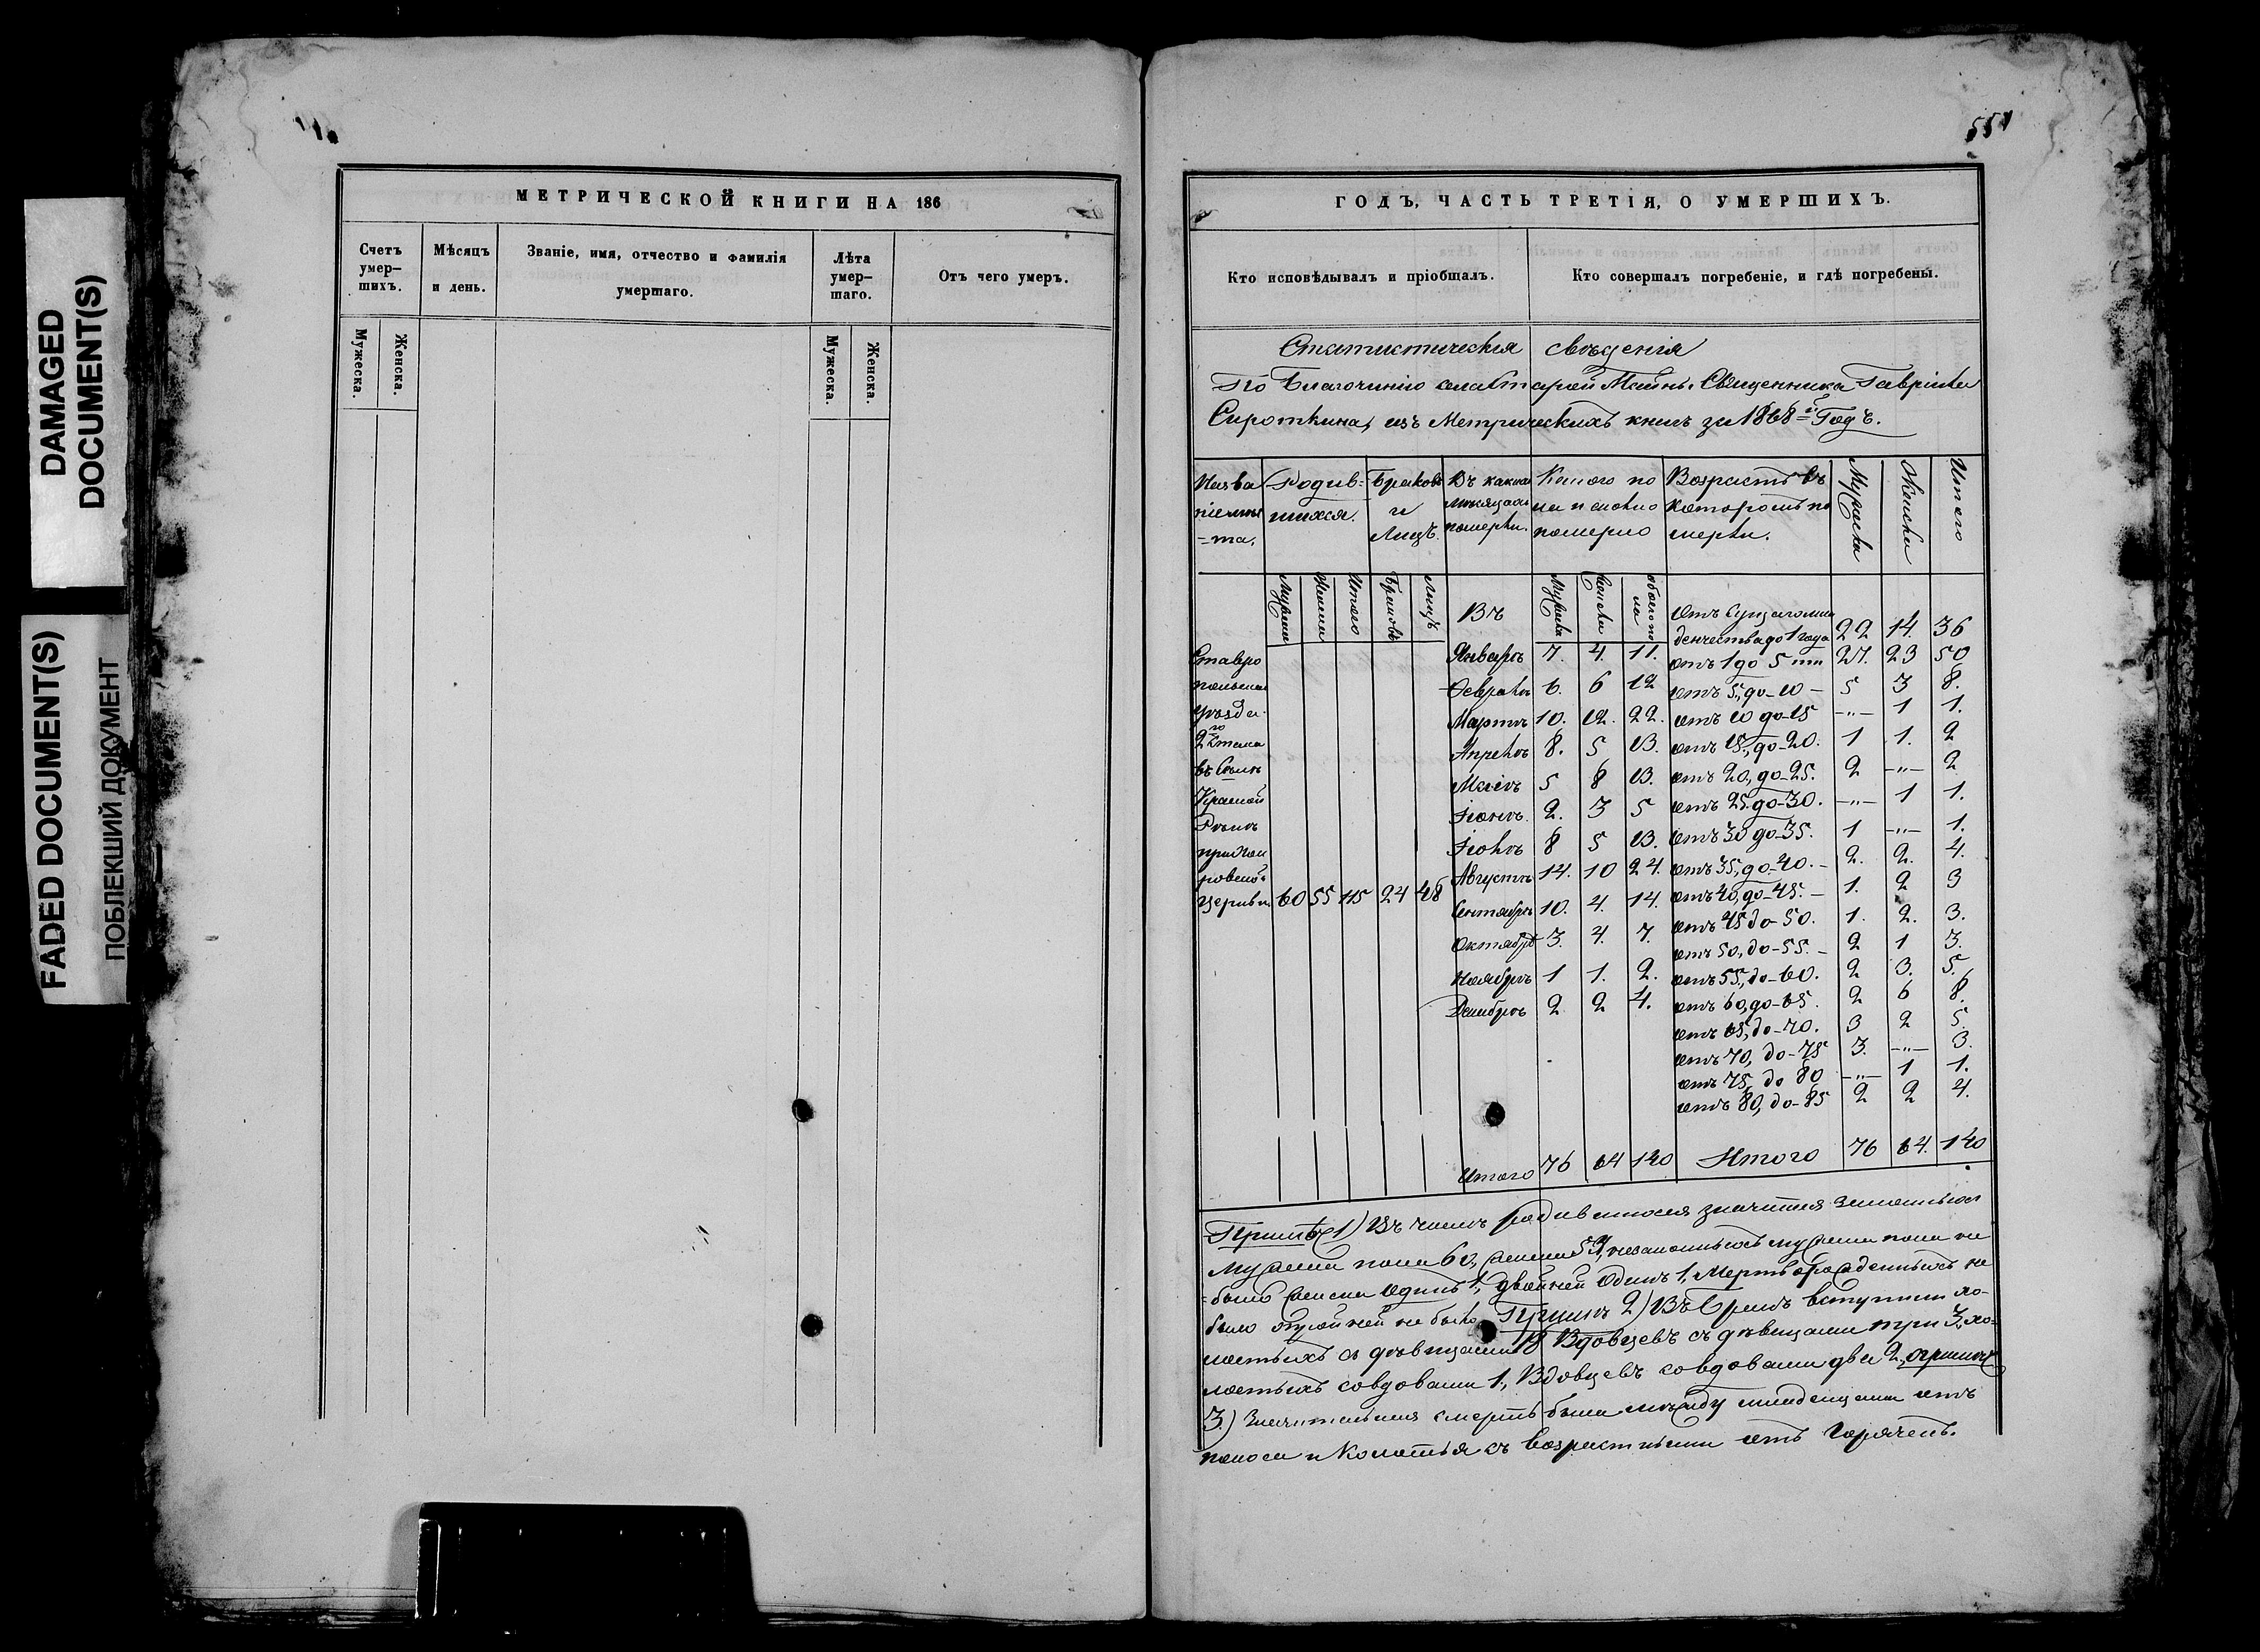 DAMAGED
DOCUMENT(S)
FADED DOCUMENT(S)
ПОБЛЕКШИЙ ДОКУМЕНТ
МЕТРИЧЕСКОЙ КНИГИ НА 186
Счетъ умер-шихъ.
Мѣсяцъ и день.
Званіе, имя, отчество и фамилія умершаго.
Лѣта умер-шаго.
Отъ чего умеръ.
Мужеска.
Женска.
Мужеска.
Женска.
551
ГОДЪ, ЧАСТЬ ТРЕТІЯ, О УМЕРШИХЪ.
Кто исповѣдывалъ и пріобщалъ.
Кто совершалъ погребеніе, и гдѣ погребены.
Статистическія свѣденія
По Благочинію села Старой Майны Священника Гавріила
Сироткина, изъ Метрическихъ книгъ за 1868й Годъ.
Родив-шихся.
Браковъ и Лицъ.
Въ какихъ мѣсяцахъ померли.
Возрастъ въ которомъ померли.
Мужеска
Женска
Итого
Мужеска Женска Итого Браковъ Лицъ
Въ
Мужеска Женска обоего пола
Отъ Сущаго мла
денчества до 1 года 22 14. 36
Январѣ 7. 4. 11. отъ 1 до 5 ти 27. 23 50
Февралѣ 6. 6 12 отъ 5, до - 10 - 5 3 8.
Мартѣ 10. 12. 22. отъ 10 до - 15 -„- 1 1.
Апрелѣ 8. 5 13. отъ 15, до - 20. 1 1. 2
Маіѣ 5 8 13. отъ 20, до - 25. 2 -„- 2
Іюнѣ 2. 3 5 отъ 25 до - 30. -„- 1 1.
Іюлѣ 8 5 13. отъ 30 до - 35. 1 -„- 1.
Августѣ 14. 10 24. отъ 35, до - 40. - 2. 2. 4.
Сентябрѣ 10. 4. 14. отъ 40, до - 45. - 1. 2 3
Октябрѣ 3. 4. 7. отъ 45 до - 50. 1. 2. 3.
отъ 50, до - 55. - 2 1 3.
Ноябрѣ 1 1. 2. отъ 55, до - 60. 2 3. 5.
Декабрѣ 2 2 4. отъ 60, до - 65. 2 6 8.
отъ 65, до - 70. 3 2 5.
отъ 70, до - 75 3. -„- 3.
отъ 75, до 80 -„- 1 1.
отъ 80, до - 85 2 2 4.
Ставро
польскаго
уѣзда
2го Стана
въ Селѣ
Красной
Рѣкѣ
при
церкви 60 55 115 24 48
Итого 76 64 140 Итого 76 64. 140
Примѣч 1) Въ числѣ родившихся значится законныхъ
мужеска пола 60, женска 54, незаконныхъ мужеска пола не
было женска одинъ 1, двойней одинъ 1, Мертворожденныхъ не
было тройней не было. Примѣч 2) Въ бракъ вступили хо-
лостыхъ съ дѣвицами 18 Вдовцевъ съ дѣвицами три 3, хо-
лостыхъ со вдовами 1, Вдовцевъ со вдовами два 2,
3) Значительная смерть была между младенцами отъ
поноса и Колотья съ возрастными отъ Горячекъ.